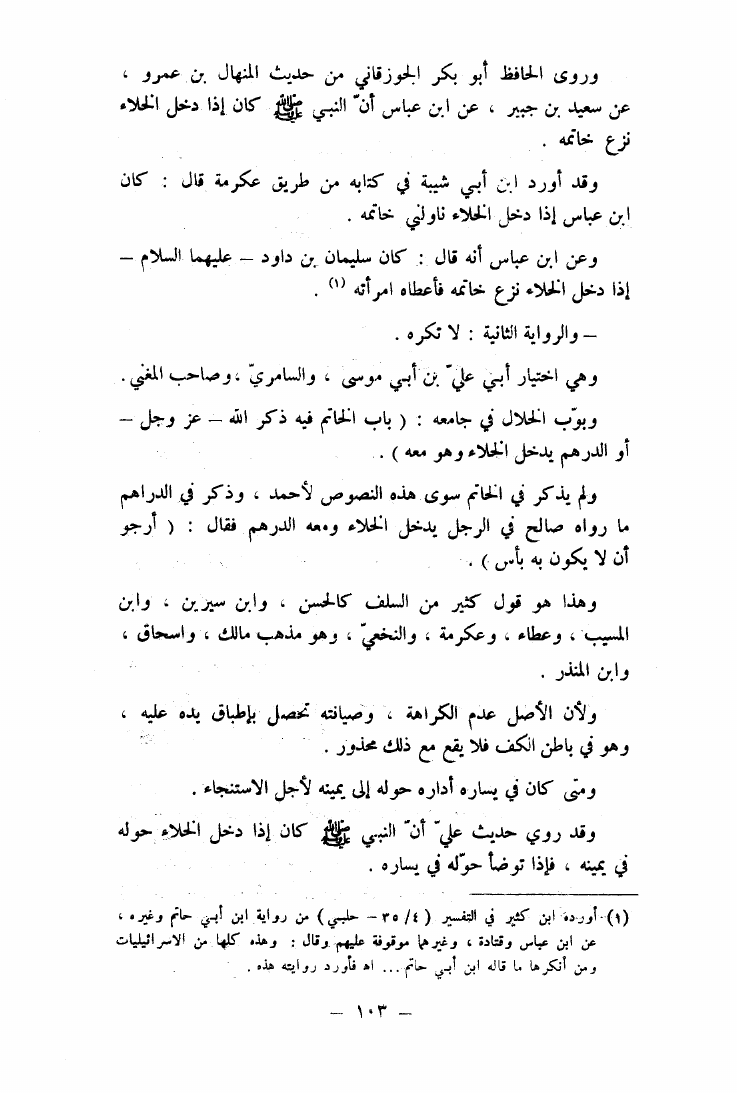 وروى الحافظ أبو بكر الجوزقاني من حديث المنهال بن عمرو ،
عن سعيد بن جبير ، عن ابن عباس أنّ النبي ﷺ كان إذا دخل الخلاء
نزع خاتمه .
وقد أورد ابن أبي شيبة في كتابه من طريق عكرمة قال : كان
ابن عباس إذا دخل الخلاء ناولني خاتمه .
وعن ابن عباس أنه قال : كان سليمان بن داود – عليهما السلام –
إذا دخل الخلاء نزع خاتمه فأعطاه امرأته (١) .
– والرواية الثانية : لا تكره .
وهي اختيار أبي عليّ بن أبي موسى ، والسامريّ ، وصاحب المغني .
وبوّب الخلال في جامعه : ( باب الخاتم فيه ذكر الله – عز وجل –
أو الدرهم يدخل الخلاء وهو معه ) .
ولم يذكر في الخاتم سوى هذه النصوص لأحمد ، وذكر في الدراهم
ما رواه صالح في الرجل يدخل الخلاء ومعه الدرهم فقال : ( أرجو
أن لا يكون به بأس ) .
وهذا هو قول كثير من السلف كالحسن ، وابن سيرين ، وابن
المسيب ، وعطاء ، وعكرمة ، والنخعيّ ، وهو مذهب مالك ، واسحاق ،
وابن المنذر .
ولأن الأصل عدم الكراهة ، وصيانته تحصل بإطباق يده عليه ،
وهو في باطن الكف فلا يقع مع ذلك محذور .
ومتى كان في يساره أداره حوله إلى يمينه لأجل الاستنجاء .
وقد روي حديث عليّ أنّ النبي ﷺ كان إذا دخل الخلاء حوله
في يمينه ، فإذا توضأ حوّله في يساره .
(١) أورده ابن كثير في التفسير ( ٤/ ٣٥ – حلبي ) من رواية ابن أبي حاتم وغيره ،
عن ابن عباس وقتادة ، وغيرهما موقوفة عليهم وقال : وهذه كلها من الاسرائيليات
ومن أنكرها ما قاله ابن أبي حاتم ... اه فأورد روايته هذه .
– ١٠٣ –